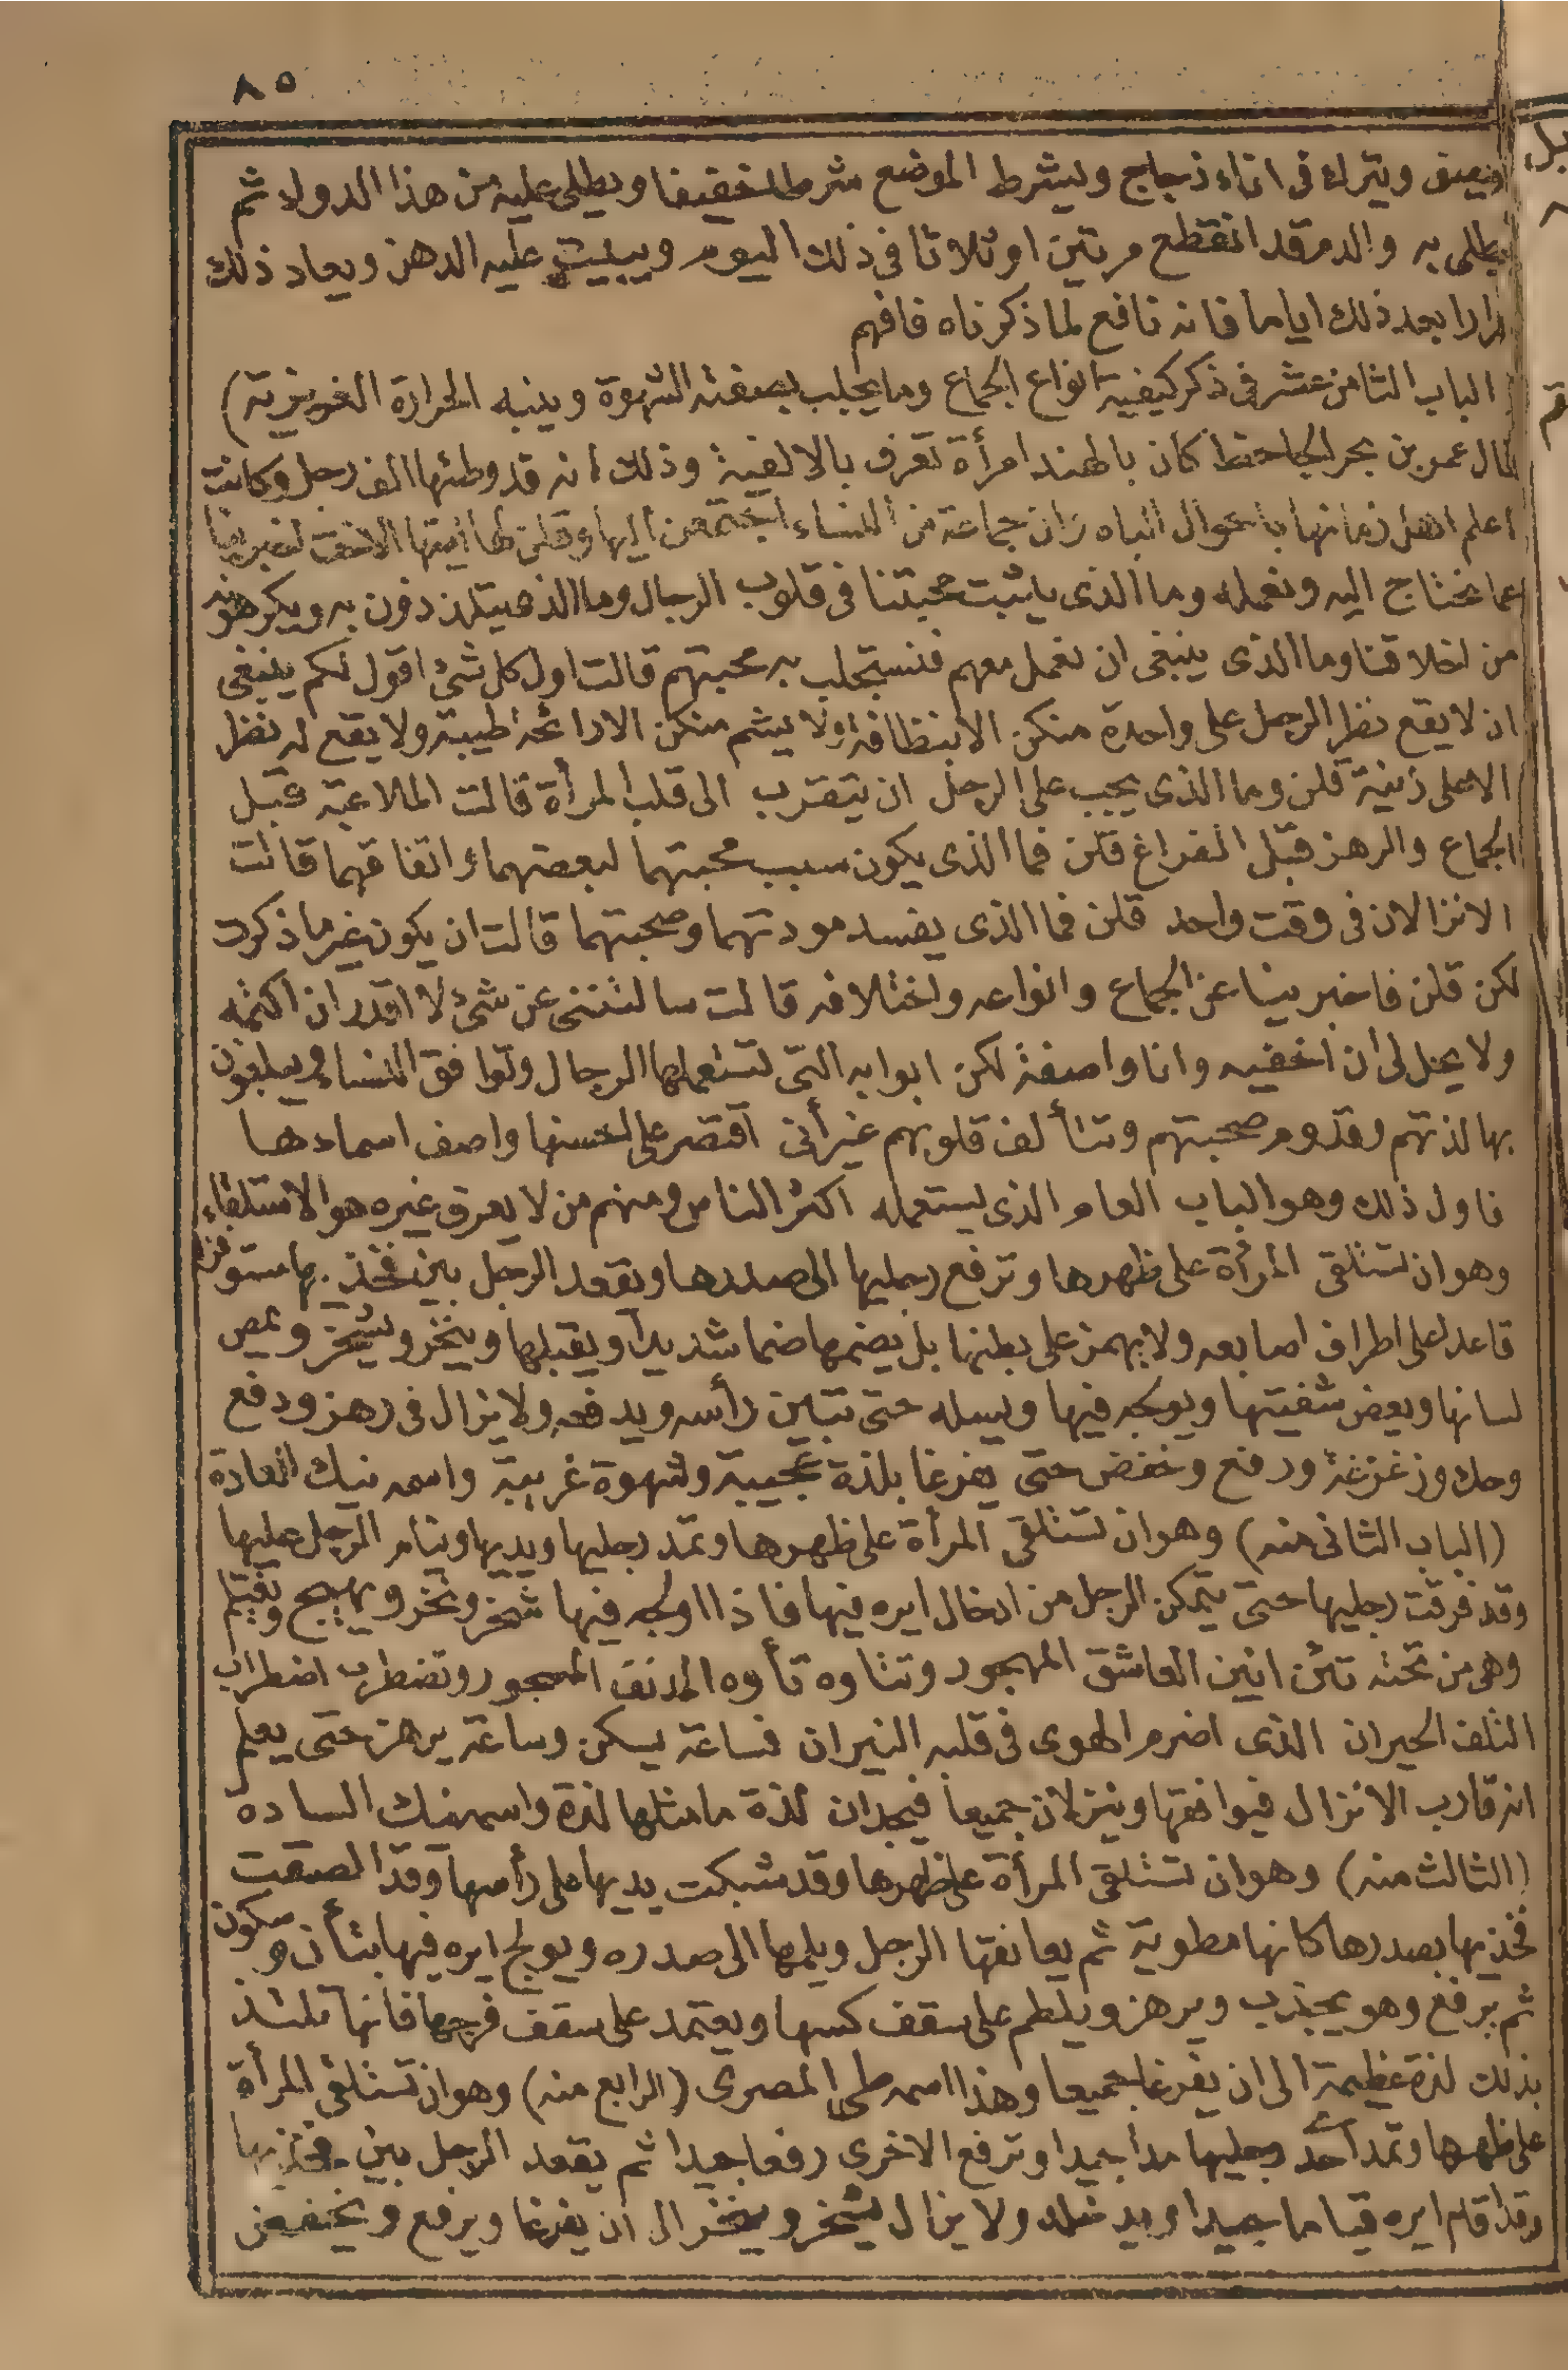 ٨٥
ويترك فى اناء زجاج ويشرط الموضع شرطا خفيفا ويطلى عليه من هذا الدواء ثم
يطلى به والدم قد انقطع مرتين او ثلاثا فى ذلك اليوم ويبيت عليه الدهن ويعاد ذلك
مرارا بعد ذلك اياما فانه نافع لما ذكرناه فافهم
الباب الثامن عشر فى ذكر كيفية انواع الجماع وما يجلب بصفته الشهوة وينبه الحرارة الغريزية)
قال عمر بن بحر الجاحظ كان بالهند امرأة تعرف بالالفية وذلك انه قد وطئها الف رجل وكانت
اعلم اهل زمانها باحوال الباه وان جماعة من النساء اجتمعن اليها وقلن لها ايتها الاخت اخبرينا
عما نحتاج اليه ونعمله وما الذى يثبت محبتنا فى قلوب الرجال وما الذى يتلذذون به ويكرهونه
من اخلاقنا وما الذى ينبغى ان نعمل معهم فنستجلب به محبتهم قالت اول كل شئ اقول لكم ينبغى
ان لا يقع نظر الرجل على واحدة منكن الا بنظافة ولا يشم منكن الا رائحة طيبة ولا يقع له نظر
الا على زينة قلن وما الذى يجب على الرجل ان يتقرب الى قلب المرأة قالت الملاعبة قبل
الجماع والرهز قبل الفراغ قلن فما الذى يكون سبب محبتهما لبعضهما واتفاقهما قالت
الانزالان فى وقت واحد قلن فما الذى يفسد مودتهما وصحبتهما قالت ان يكون غير ما ذكرت
لكن قلن فاخبرينا عن الجماع وانواعه واختلافه قالت سالتننى عن شئ لا اقدر ان اكتمه
ولا يحل لى ان اخفيه وانا واصفة لكن ابوابه التى تستعملها الرجال وتوافق النساء ويبلغون
بها لذتهم وتدوم صحبتهم وتتألف قلوبهم غير أنى اقتصر على احسنها واصف اسماءها
فاول ذلك وهو الباب العام الذى يستعمله اكثر الناس ومنهم من لا يعرف غيره هو الاستلقاء
وهو ان تستلقى المرأة على ظهرها وترفع رجليها الى صدرها ويقعد الرجل بين فخذيها مستوفزا
قاعدا على اطراف اصابعه ولا يهمز على بطنها بل يضمها ضما شديدا ويقبلها وينخر ويشخر ويمص
لسانها ويعض شفتيها ويولجه فيها ويسله حتى تباين رأسه ويدفعه ولا يزال فى رهز ودفع
وحك وزغزغة ورفع وخفض حتى يفرغا بلذة عجيبة وشهوة غريبة واسمه نيك العادة
(الباب الثانى منه) وهو ان تستلقى المرأة على ظهرها وتمد رجليها ويديها وينام الرجل عليها
وقد فرقت رجليها حتى يتمكن الرجل من ادخال ايره فيها فاذا اولجه فيها شخر ونخر ويهيج ويغتلم
وهى من تحته تئن انين العاشق المهجور وتتاوه تأوه المدنف المهجور وتضطرب اضطراب
التلف الحيران الذى اضرم الهوى فى قلبه النيران فساعة يسكن وساعة يرهز حتى يعلم
انه قارب الانزال فيوافقها وينزلان جميعا فيجدان لذة ما مثلها لذة واسمه نيك الساده
(الثالث منه) وهو ان تستلقى المرأة على ظهرها وقد شبكت يديها على رأسها وقد الصقت
فخذيها بصدرها كانها مطوية ثم يعانقها الرجل ويلمها الى صدره ويولج ايره فيها بتأن وسكون
ثم يرفع وهو يجذب ويرهز ويلطم على سقف كسها ويعتمد على سقف فرجها فانها تلتذ
بذلك لذة عظيمة الى ان يفرغا جميعا وهذا اسمه طى المصرى (الرابع منه) وهو ان تستلقى المرأة
على ظهرها وتمد احد رجليها مدا جيدا وترفع الاخرى رفعا جيدا ثم يقعد الرجل بين فخذيها
وقد اقام ايره قياما جيدا ويدخله ولا يزال يشخر وينخر الى ان يفرغا ويرفع ويخفض